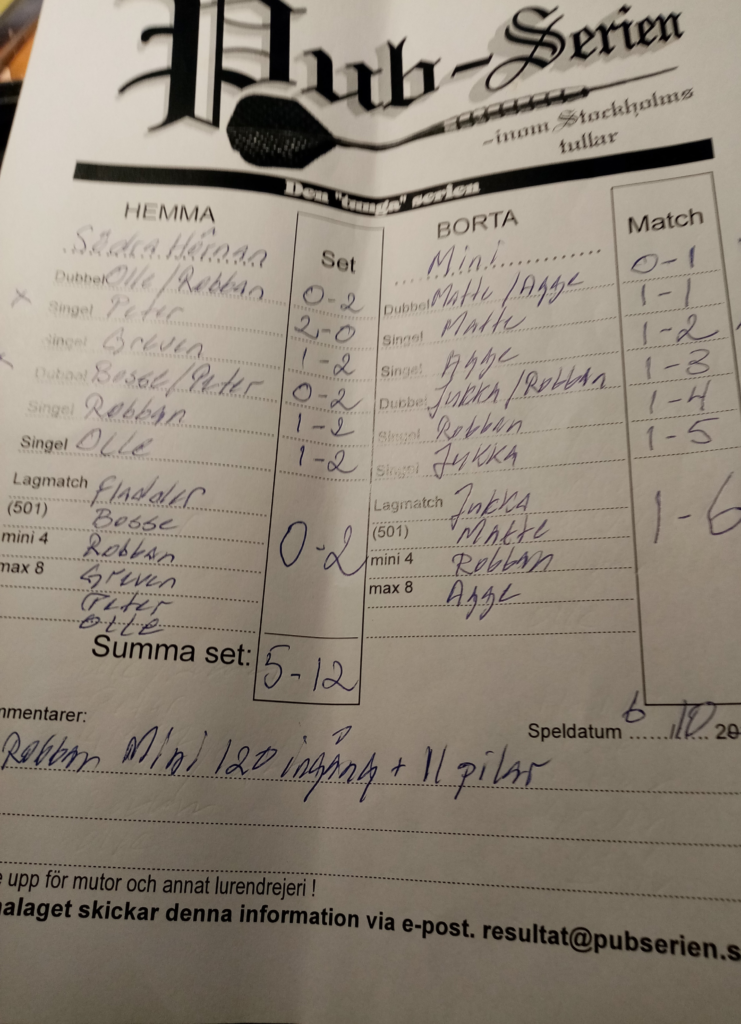 Pub-Serien
-inom Stockholms
tullar
Den "tunga" serien
HEMMA Set BORTA Match
Södra Hörnan Mini
Dubbel Olle/Robban 0-2 Dubbel Matte/Agge 0-1
Singel Peter 2-0 Singel Matte 1-1
Singel Greven 1-2 Singel Agge 1-2
Dubbel Bosse/Peter 0-2 Dubbel Jukka/Robban 1-3
Singel Robban 1-2 Singel Robban 1-4
Singel Olle 1-2 Singel Jukka 1-5
Lagmatch Fladder 0-2 Lagmatch Jukka 1-6
(501) Bosse (501) Matte
mini 4 Robban mini 4 Robban
max 8 Greven max 8 Agge
Peter
Olle
Summa set: 5-12
mmentarer: Speldatum 6/10 20
Robban Mini 120 ingång + 11 pilar
e upp för mutor och annat lurendrejeri !
alaget skickar denna information via e-post. resultat@pubserien.s